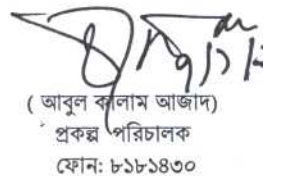 ( আবুল কালাম আজাদ)
প্রকল্প পরিচালক
ফোন: ৮১৮১৪৩০